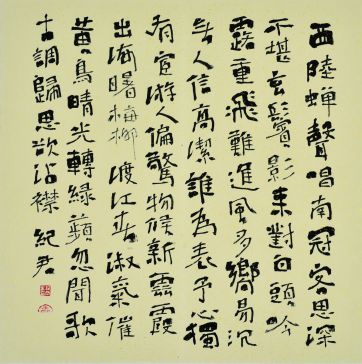 西陸蟬聲唱南冠客思深
不堪玄鬢影来對白頭吟
露重飛難進風多響易沉
无人信高潔誰為表予心獨
有宦游人偏驚物候新雲霞
出海曙梅柳渡江春淑氣催
黃鳥晴光轉綠蘋忽聞歌
古調歸思欲沾襟 紀君